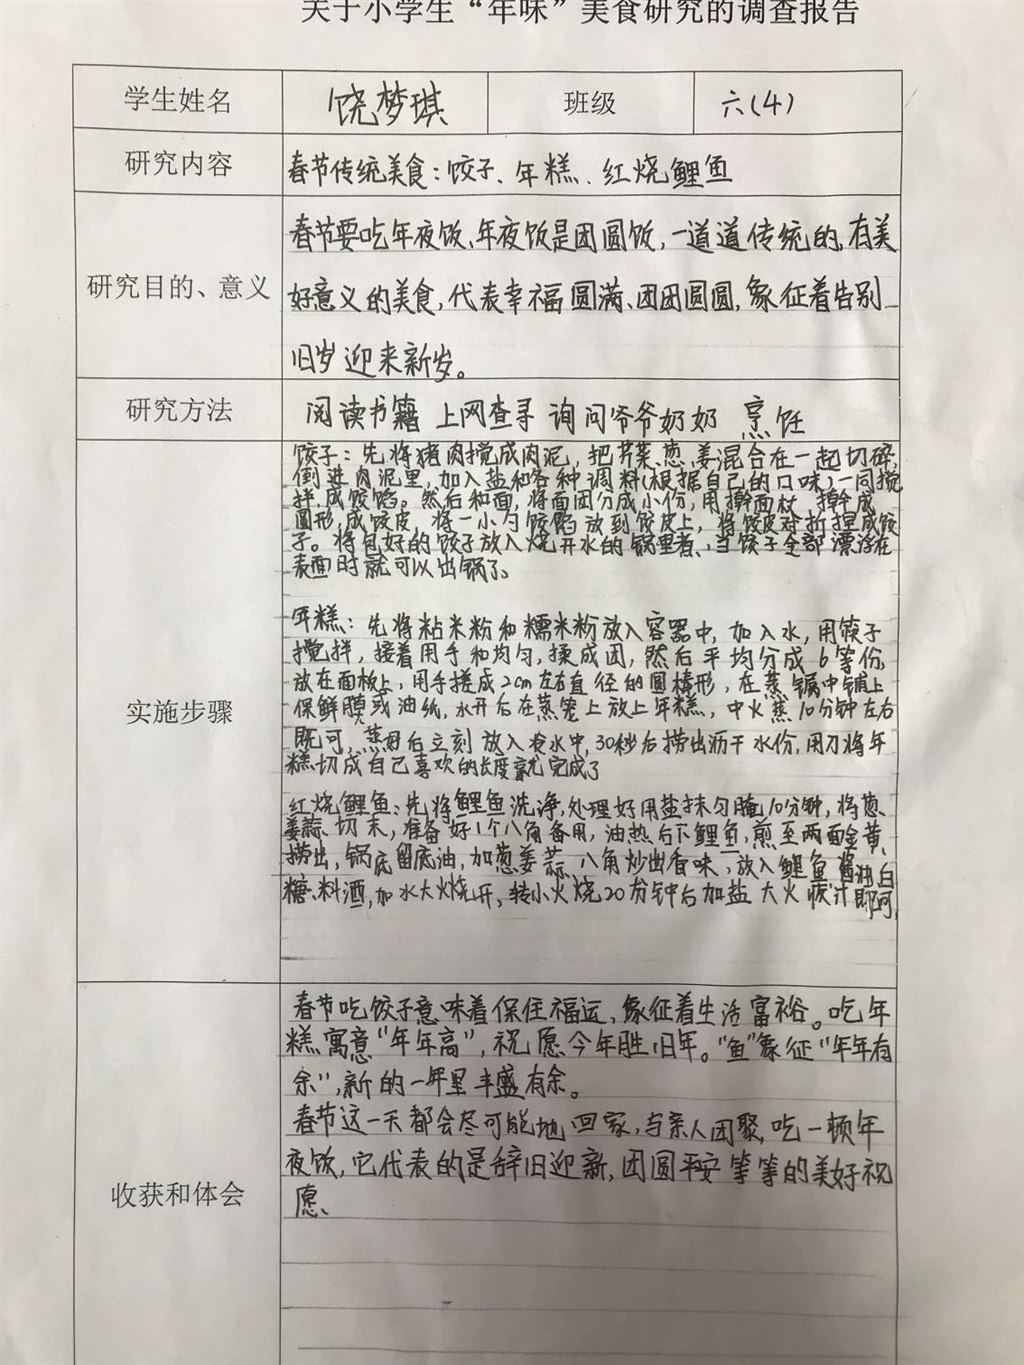 关于小学生“年味”美食研究的调查报告
学生姓名 饶梦琪 班级 六(4)
研究内容 春节传统美食：饺子、年糕、红烧鲤鱼
春节要吃年夜饭、年夜饭是团圆饭，一道道传统的，有美
研究目的、意义 好意义的美食，代表幸福圆满、团团圆圆，象征着告别
旧岁迎来新岁。
研究方法 阅读书籍 上网查寻 询问爷爷奶奶 烹饪
饺子：先将猪肉搅成肉泥，把芹菜、葱、姜混合在一起切碎，
倒进肉泥里，加入盐和各种调料(根据自己的口味)一同搅
拌成饺馅。然后和面，将面团分成小份，用擀面杖 擀成
圆形，成饺皮，将一小勺饺馅放到饺皮上，将饺皮对折捏成饺
子。将包好的饺子放入烧开水的锅里煮、当饺子全部漂浮在
表面时就可以出锅了。
年糕：先将粘米粉和糯米粉放入容器中，加入水，用筷子
搅拌，接着用手和均匀，揉成团，然后平均分成6等份，
放在面板上，用手搓成2cm左右直径的圆椭形，在蒸锅中铺上
实施步骤 保鲜膜或油纸，水开后在蒸笼上放上年糕，中火蒸10分钟左右
既可，蒸好后立刻放入冷水中，30秒后捞出沥干水份，用刀将年
糕切成自己喜欢的长度就完成了
红烧鲤鱼：先将鲤鱼洗净，处理好用盐抹匀腌10分钟，将葱、
姜蒜、切末，准备好1个八角备用，油热后下鲤鱼，煎至两面金黄、
捞出，锅底留底油，加葱姜蒜、八角炒出香味，放入鲤鱼酱油白
糖、料酒，加水大火烧开，转小火烧20分钟后加盐 大火收汁即可，
春节吃饺子意味着保住福运、象征着生活富裕。吃年
糕寓意“年年高”，祝愿今年胜旧年。“鱼”象征“年年有
余”，新的一年里丰盛有余。
春节这一天都会尽可能地回家，与亲人团聚，吃一顿年
夜饭，它代表的是辞旧迎新，团圆平安等等的美好祝
收获和体会 愿、